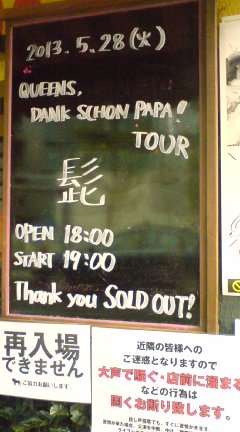 2013.5.28(火)
QUEENS,
DANK SCHON PAPA!
TOUR
髭
OPEN 18:00
START 19:00
Thank you SOLD OUT!
再入場
できません
ご協力お願いします。
近隣の皆様への
ご迷惑となりますので
大声で騒ぐ・店前に溜まる
などの行為は
固くお断り致します。